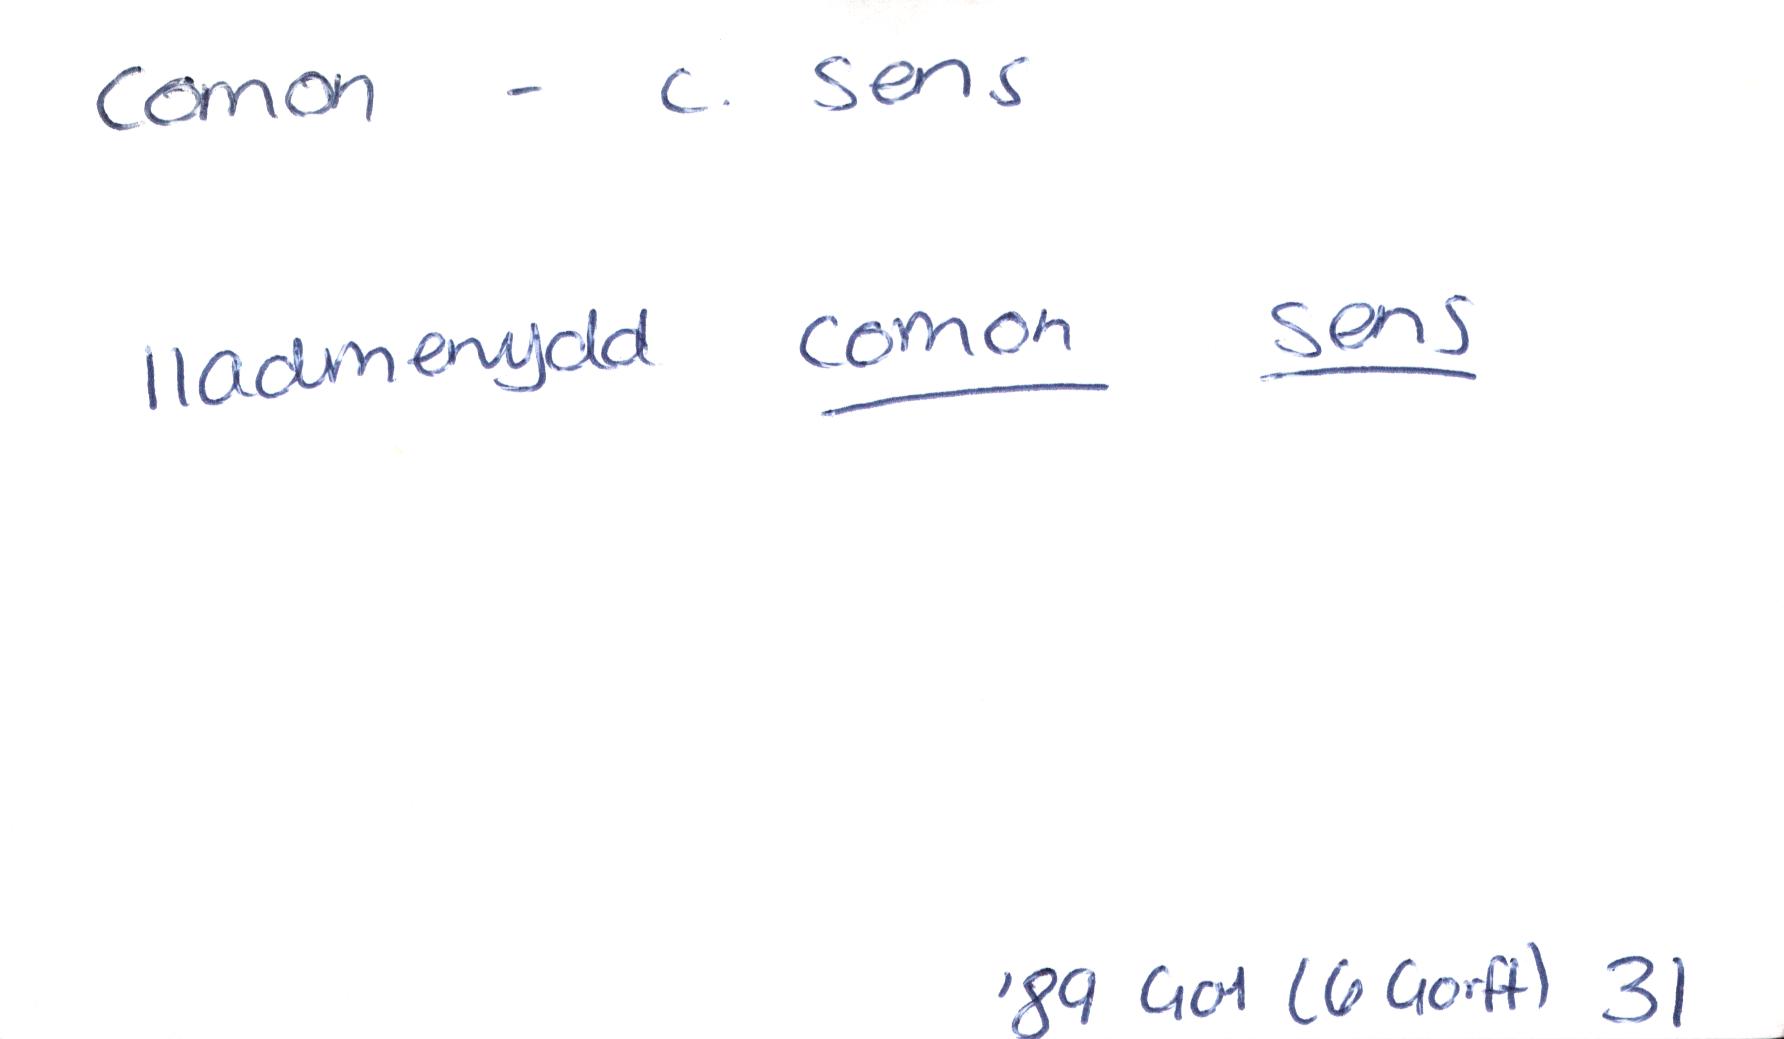 comon - c. sens
lladmerydd comon sens
'89 Gol (6 Gorff) 31